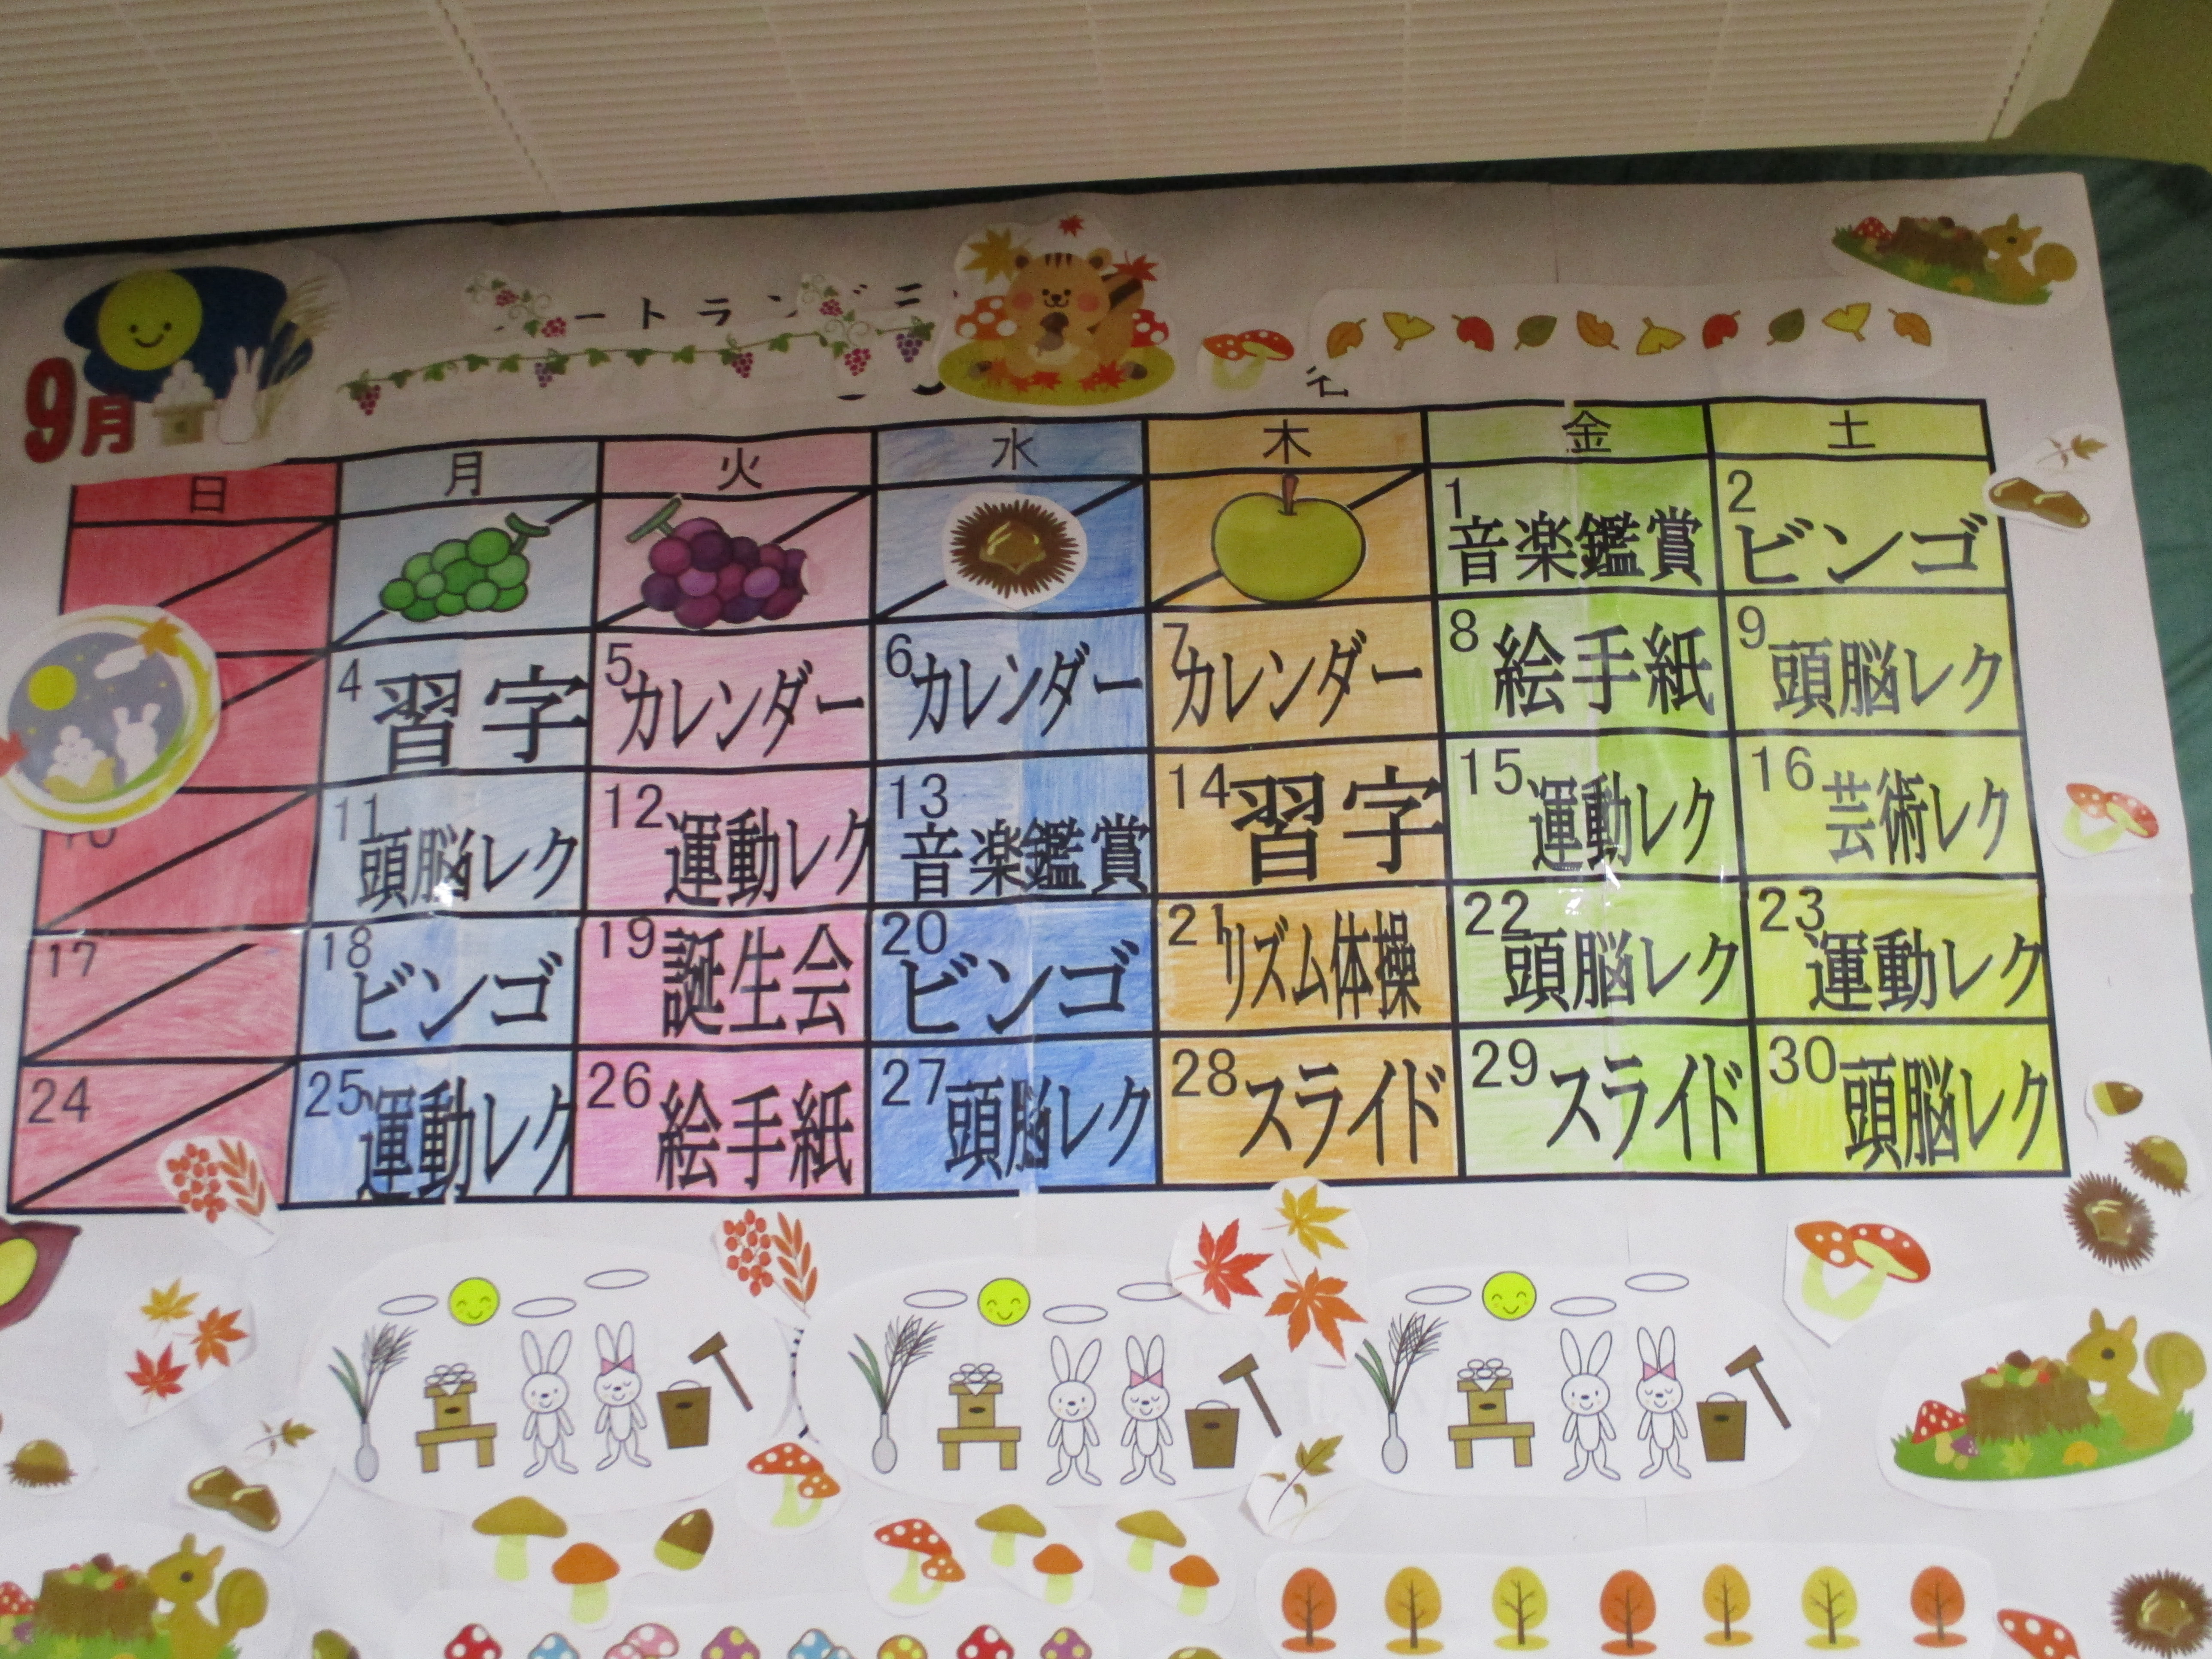 ートラン
9月
日 月 火 水 木 金 土
1 2
音楽鑑賞 ビンゴ
4 5 6 7 8 9
習字 カレンダー カレンダー カレンダー 絵手紙 頭脳レク
11 12 13 14 15 16
頭脳レク 運動レク 音楽鑑賞 習字 運動レク 芸術レク
17 18 19 20 21 22 23
ビンゴ 誕生会 ビンゴ リズム体操 頭脳レク 運動レク
24 25 26 27 28 29 30
運動レク 絵手紙 頭脳レク スライド スライド 頭脳レク